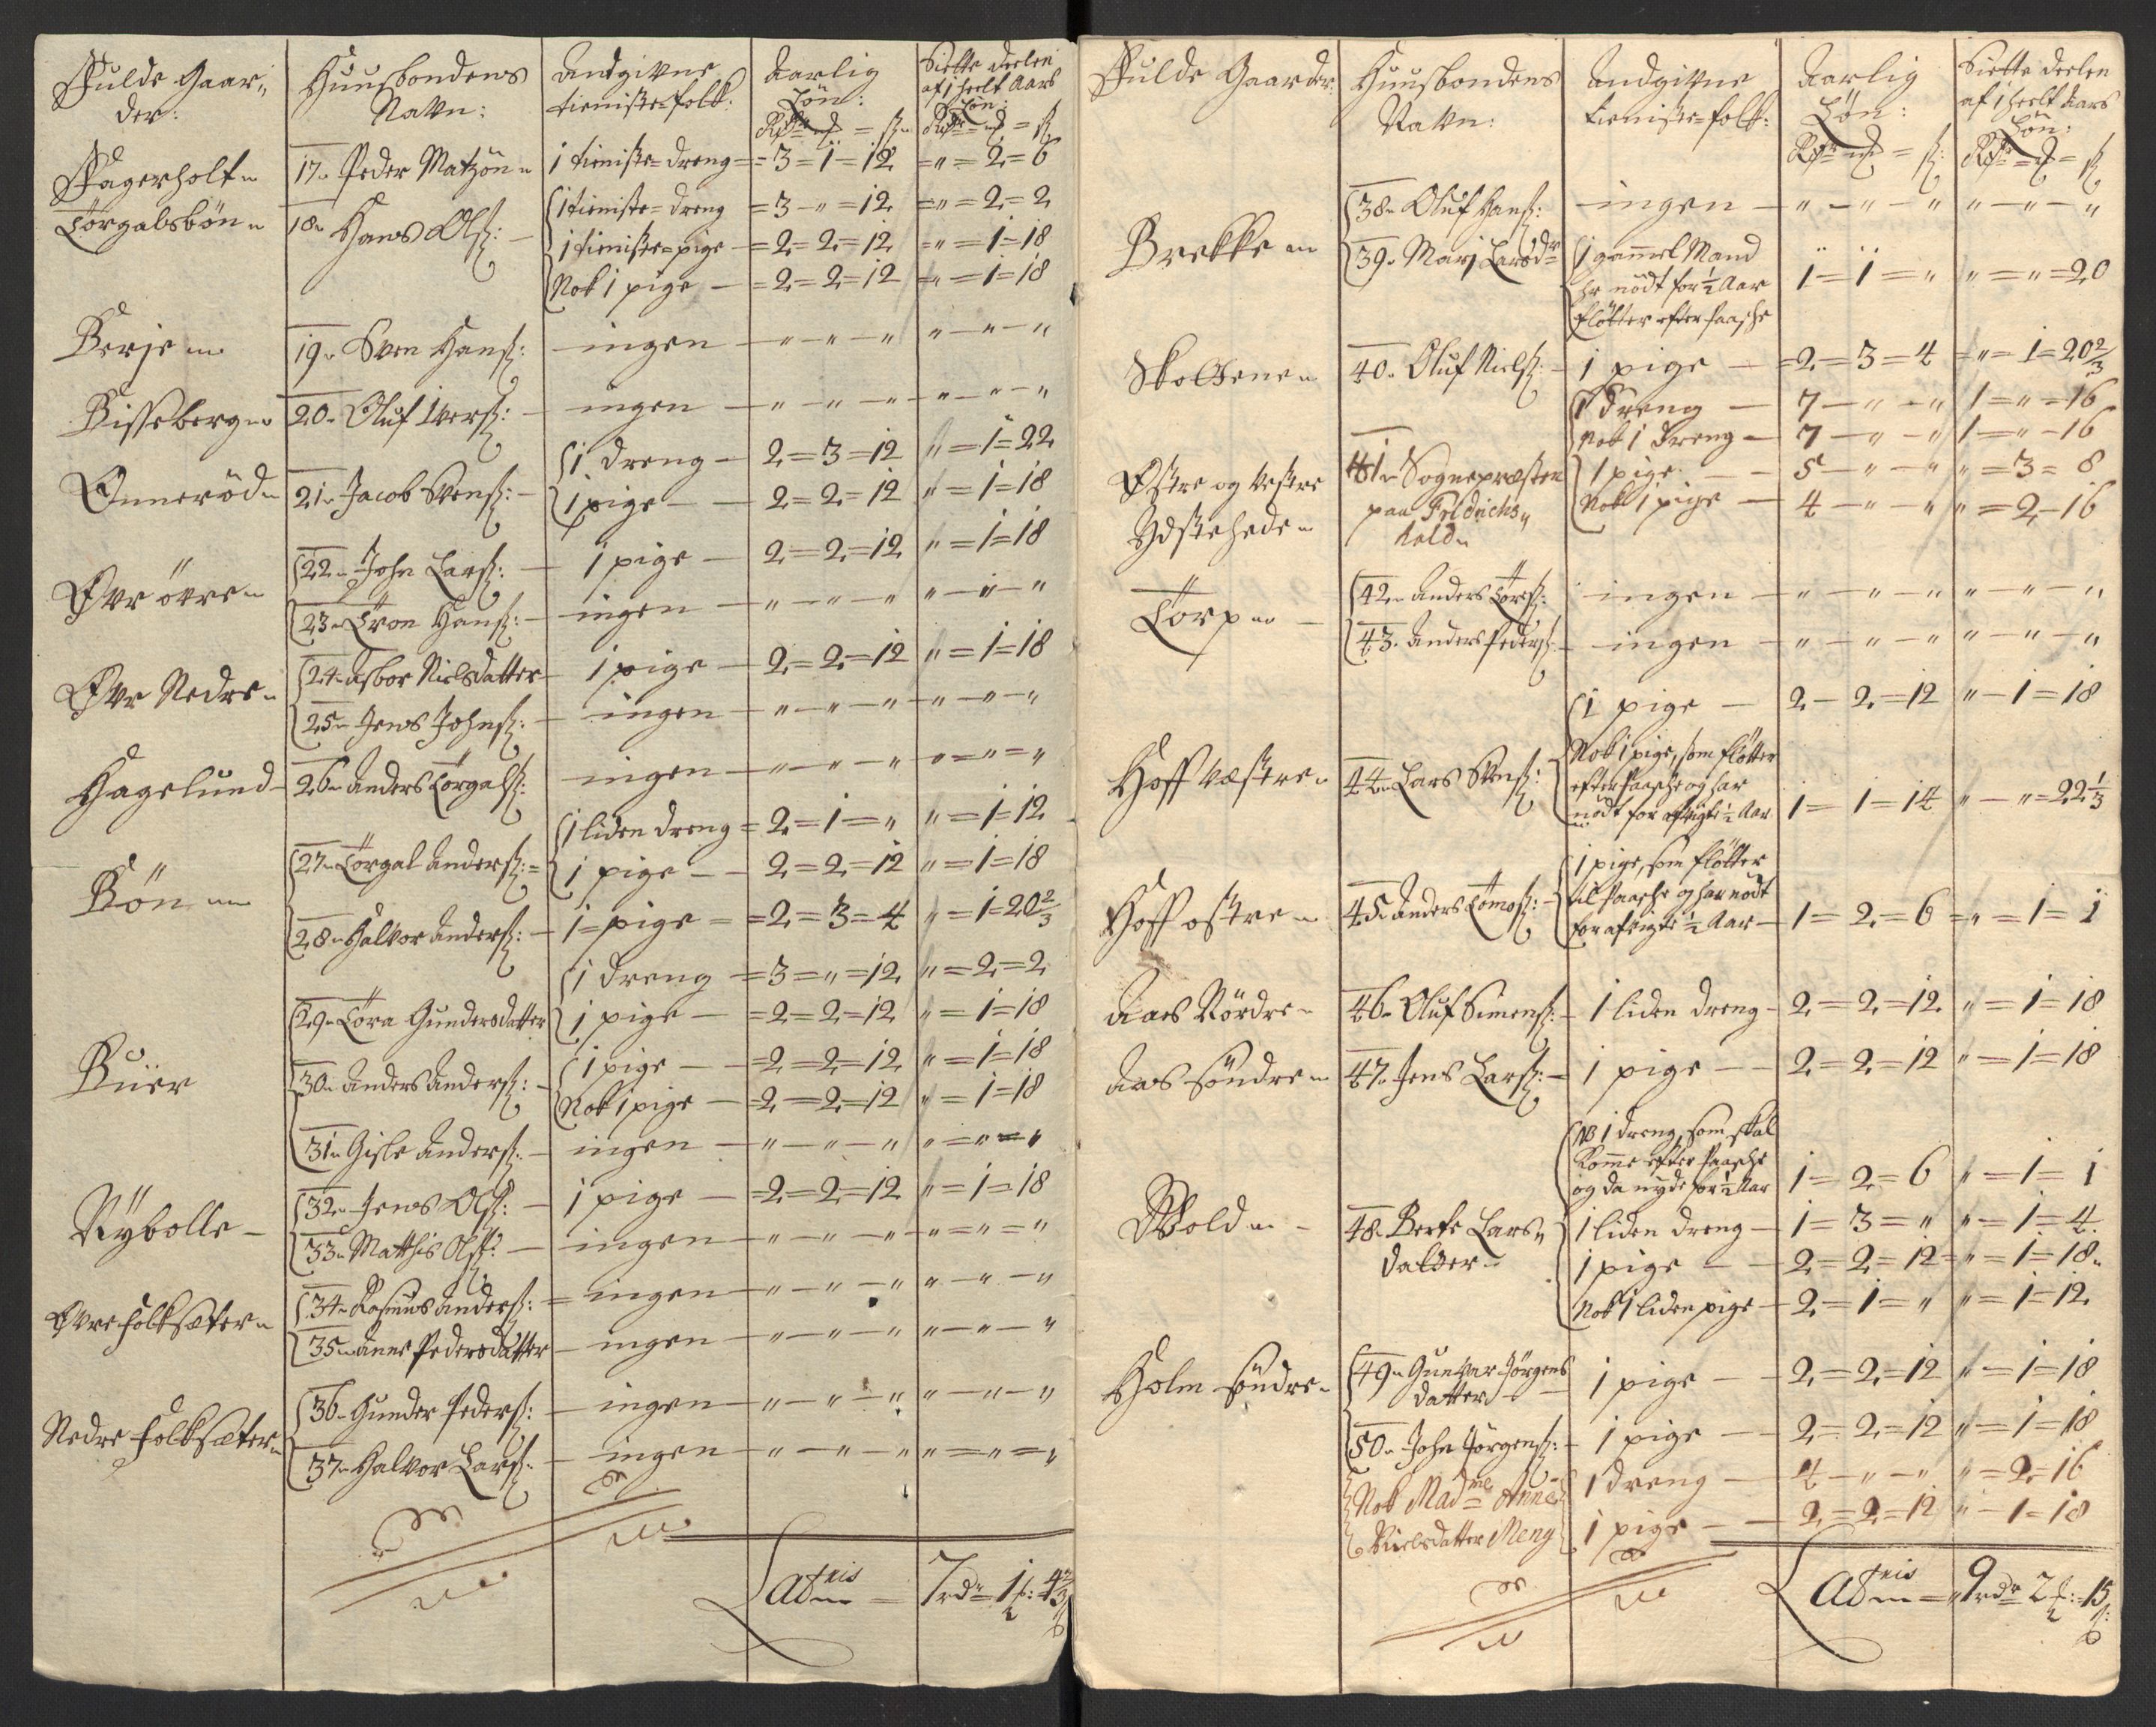 Fulde Gaar,, Huusbondens Andgivne Aarlig Siette deelen
der: Navn: tieniste-folk: Løn: af 1 heelt Aars
Løn:
Rdr = ort = ß Rdr = ort = ß
Fagerholt 17. Peder Matzøn 1 tieniste-dreng = 3 = 1 = 12 = " = 2 = 6
Torgalsbøn 18. Hans Olß: 1 tieniste-dreng = 3 - " = 12 = " = 2 = 2
1 tieniste-pige = 2 = 2 = 12 = " = 1 = 18
Nok 1 pige = 2 = 2 = 12 = " = 1 = 18
Berje 19. Sven Hanß: ingen " - " - " " - " - "
Bisseberg 20. Oluf Iverß: ingen " - " - " " - " - "
Onnerød 21. Jacob Svenß: 1 dreng 2 = 3 = 12 " = 1 = 22
1 pige 2 = 2 = 12 " = 1 = 18
Øvr øvre 22. John Larß: 1 pige 2 = 2 = 12 " = 1 = 18
23. Tron Hanß: ingen " - " - " " - " - "
Øvr Nedre 24. Asbor Nielsdatter 1 pige 2 = 2 = 12 " = 1 = 18
25. Jens Johnß: ingen " - " - " " - " - "
Hagelund 26. Anders Torgalß: ingen " - " - " " = " = "
Bøn 27. Torgal Anderß: 1 liden dreng = 2 = 1 = " " = 1 = 12
1 pige 2 = 2 = 12 " = 1 = 18
28. Halvor Anderß: 1 = pige = 2 = 3 = 4 " = 1 = 20 2/3
Buer 29. Tora Gundersdatter 1 dreng = 3 = " = 12 " = 2 = 2
1 pige = 2 = 2 = 12 " = 1 = 18
30. Anders Anderß: 1 pige = 2 = 2 = 12 " = 1 = 18
Nok 1 pige = 2 = 2 = 12 " = 1 = 18
31. Gisle Anderß: ingen " - " - " " = " = "
Nybolle 32. Jens Olß: 1 pige = 2 = 2 = 12 " = 1 = 18
33. Matthis Olß: ingen " - " - " " = " = "
Øvre folksæter 34. Rasmus Anderß: ingen " - " - " " - " - "
35. Anne Pedersdatter ingen " - " - " " - " - "
Nedre folksæter 36. Gunder Pederß: ingen " - " - " " - " - "
37. Halvor Larß: ingen " - " - " " = " = "
Latris 7 rdr 1 ort: 4 2/3 ß
Fulde Gaarder: Huusbondens Andgivne Aarlig Siette deelen
Navn: tieniste-folk: Løn: af 1 heelt Aars
Løn:
Rdr = ort = ß: Rdr = ort = ß
Brekke 38. Oluf Hanß: ingen " - " - " " - " - "
39. Mari Larsdr 1 gammel Mand
hr nødt for 1/2 Aar 1 = 1 = " " = " = 20
fløtter efter Paasche
Skottene 40. Oluf Nielß: 1 pige = 2 = 3 = 4 = " = 1 = 20 2/3
Østre og Vestre 41. Sognepræsten 1 dreng 7 - " - " 1 = " = 16
Ydstehede paa Fridrichs,, Nok 1 dreng 7 - " - " 1 = " - 16
hald 1 pige 5 - " - " " = 3 = 8
Nok 1 pige 4 - " - " " = 2 - 16
Torp 42. Anders Torß: ingen " - " - " " - " - "
43. Anders Pederß: ingen " - " - " " - " - "
Hoff væstre 44. Lars Svenß: 1 pige 2 - 2 = 12 " - 1 = 18
Nok 1 pige, som fløtter
efter Paasche og har
nødt for afvigte 1/2 Aar 1 = 1 = 14 " - " = 22 1/3
Hoff østre 45. Anders Tomoß: 1 pige, som fløtter
til Paasche og har nødt
for afvigte 1/2 Aar 1 = 2 = 6 = " = 1 = 1
Aas Nørdre 46. Oluf Simenß: 1 liden dreng 2 = 2 = 12 " = 1 = 18
Aas søndre 47. Jens Larß: 1 pige 2 = 2 = 12 " = 1 = 18
Wold 48. Berte Lars,, NB 1 dreng, som skal
datter komme efter Paasche
og da nyde for 1/2 Aar 1 = 2 = 6 " = 1 = 1
1 liden dreng 1 = 3 = " " = 1 = 4
1 pige 2 = 2 = 12 = " = 1 = 18
Nok 1 liden pige 2 = 1 = " " = 1 = 12
Holm søndre 49. Gunvar Jørgens 1 pige 2 = 2 = 12 " = 1 = 18
datter
50. John Jørgenß: 1 pige 2 = 2 = 12 " = 1 = 18
Nok Madme Anne 1 dreng 4 - " - " " = 2 = 16
Nielsdatter Meng 1 pige 2 = 2 = 12 " - 1 = 18
Latris 9 rdr 2 ort: 15 ß: